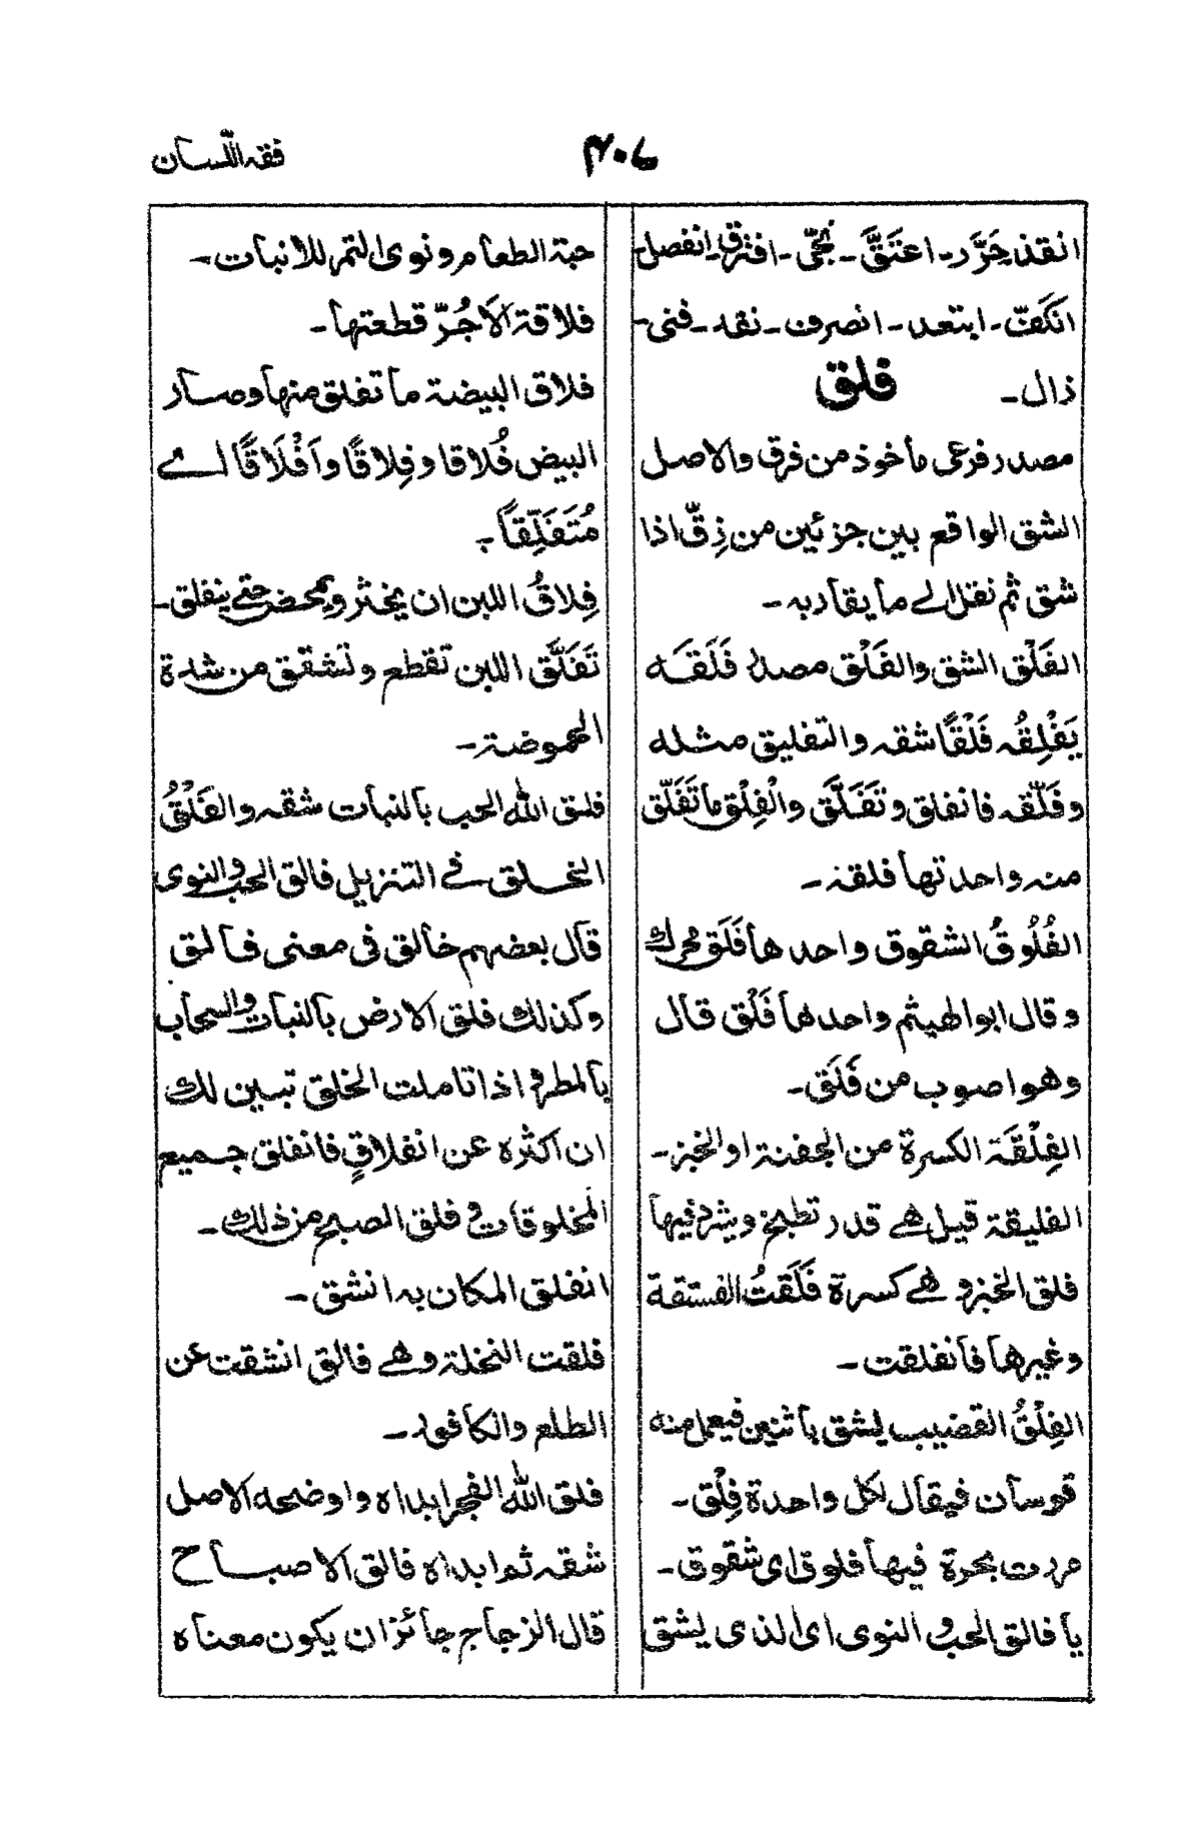 فقه اللّسان
انقذ حَرَّر - اعتَقَّ - نجّى - افترق - انفصل -
انكَفّ - ابتعد - انصرف - نفد - فنى -
ذال -
فلق
مصدر فرعى مأخوذ من فرق والاصل
الشق الواقع بين جزئين من زِقّ اذا
شق ثم نقل الے ما يقاربه -
الفَلْق الشق والفَلْق مصدر فَلَقَه
يَفْلِقُه فَلْقًا شقه والتفليق مثله
وفَلّقه فانفلق وتَفَلَّق والْفِلْق ما تَفَلّق
منه واحدتها فلقة -
الفُلُوقُ الشقوق واحدها فَلَق محرك
وقال ابوالهيثم واحدها فَلْق قال
وهو اصوب من فَلَق -
الفِلْقَة الكسرة من الجفنة او الخبز -
الفليقة قيل هے قدر تطبخ ويثرد فيها
فلق الخبز وهے كسرة فَلَقتُ الفستقة
وغيرها فانفلقت -
الفِلْقُ القضيب يشق باثنين فيعمل منه
قوسان فيقال لكل واحدة فِلْق -
مردت بحرة فيها فلوق اى شقوق -
يا فالق الحب والنوى اى الذى يشق
حبة الطعام ونوى التمر للانبات -
فلاقة الاَجُرّ قطعتها -
فلاق البيضة ما تفلق منها وصار
البيض فُلاقا وفِلاقًا واَفْلَاقًا اے
مُتَفَلِّقاً -
فِلاقُ اللبن ان يخثر ويحمض حتے ينفلق -
تَفَلَّق اللبن تقطع وتشقق من شدة
الحموضة -
فلق الله الحب بالنبات شقه والفَلْقُ
الخلق فے التنزيل فالق الحب والنوى
قال بعضهم خالق فى معنى فالق
وكذلك فلق الارض بالنبات والسحاب
بالمطر واذا تاملت الخلق تبين لك
ان اكثره عن انفلاقٍ فانفلق جميع
المخلوقات وفلق الصبح من ذلك -
انفلق المكان به انشق -
فلقت النخلة وهے فالق انشقت عن
الطلع والكافور -
فلق الله الفجر ابداه واوضحه الاصل
شقه ثم ابداه فالق الاصباح
قال الزجاج جائز ان يكون معناه